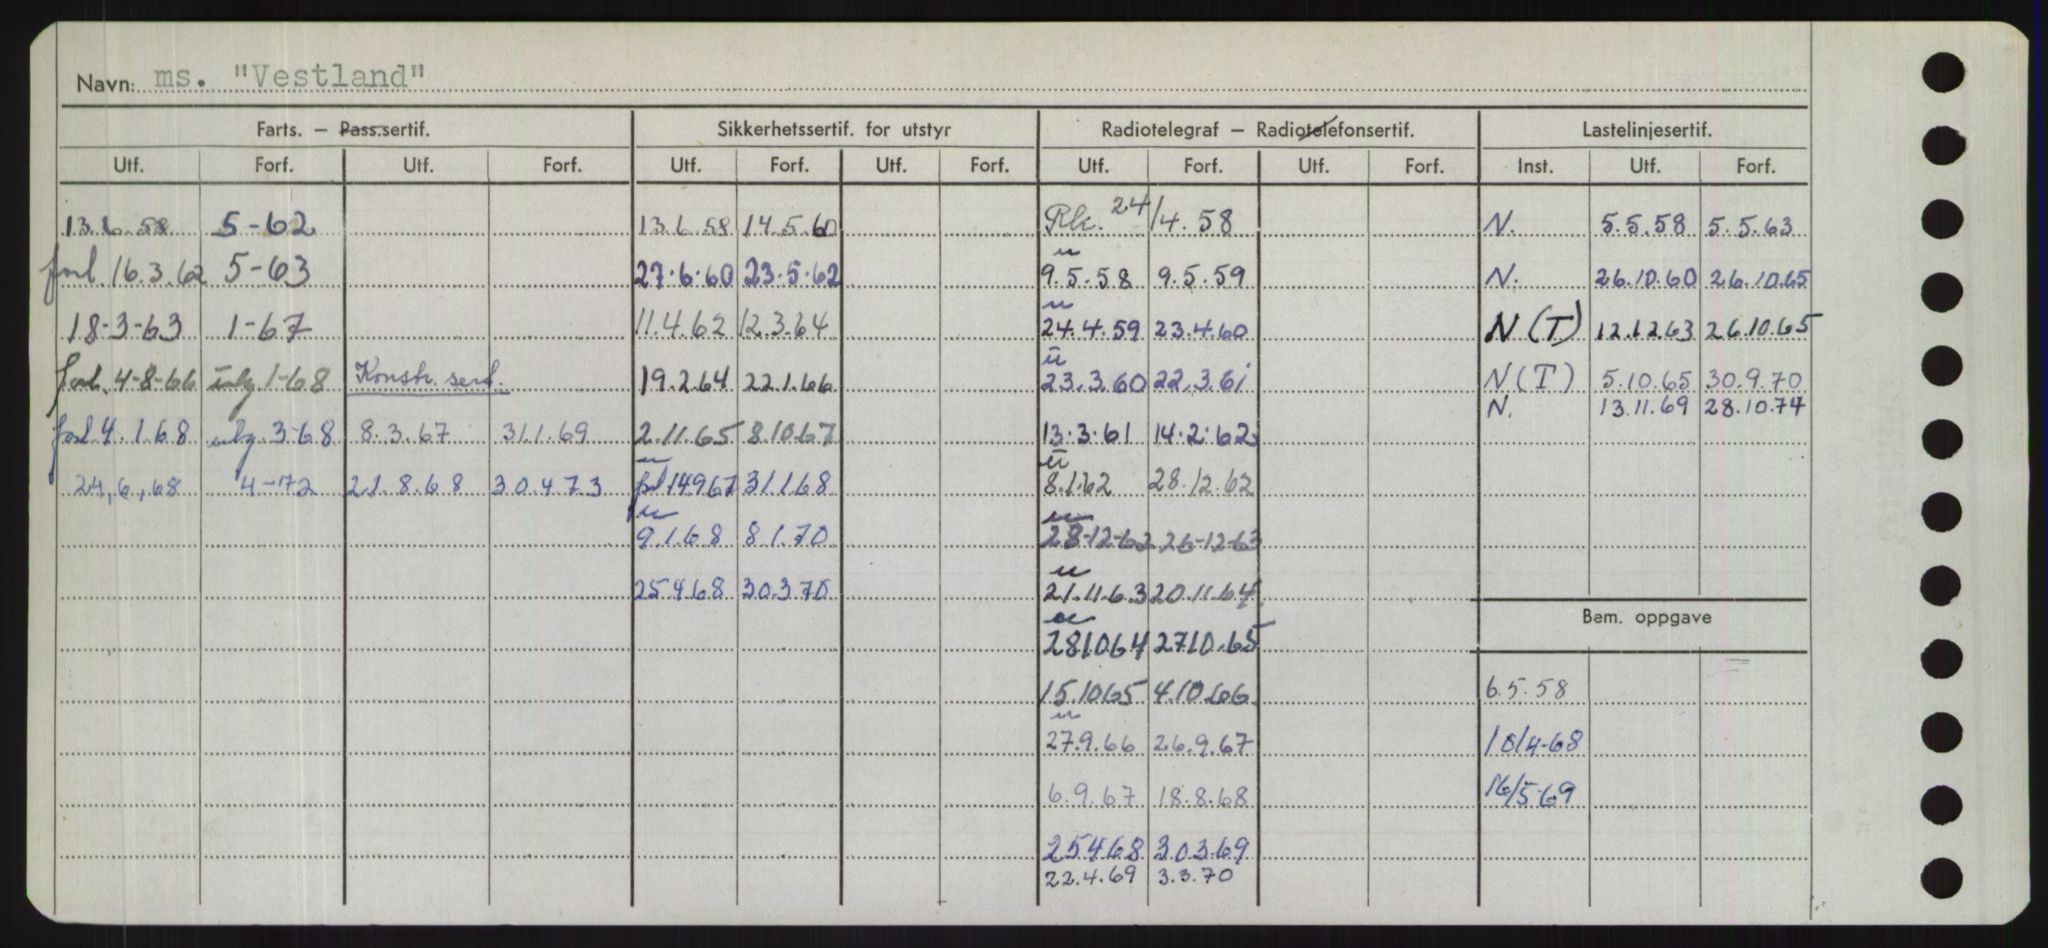 Navn: ms. "Vestland"
Farts. – Pass.sertif. Sikkerhetssertif. for utstyr Radiotelegraf – Radiotelefonsertif. Lastelinjesertif.
Utf. Forf. Utf. Forf. Utf. Forf. Utf. Forf. Utf. Forf. Utf. Forf. Inst. Utf. Forf.
13.6.58 5-62 13.6.58 14.5.60 24/4.58 N. 5.5.58 5.5.63
forl. 16.3.62 5-63 27.6.60 23.5.62 9.5.58 9.5.59 N. 26.10.60 26.10.65
18-3-63 1-67 11.4.62 12.3.64 24.4.59 23.4.60 N (T) 12.12.63 26.10.65
forl. 4-8-66 1-68 Konstr. sert. 19.2.64 22.1.66 23.3.60 22.3.61 N (T) 5.10.65 30.9.70
N. 13.11.69 28.10.74
forl 4.1.68 3-68 8.3.67 31.1.69 2.11.65 8.10.67 13.3.61 14.2.62
24,6,68 4-72 21.8.68 30.4.73 14967 31.1.68 8.1.62 28.12.62
9.1.68 8.1.70 28-12-62 26-12-63
25468 30.3.70 21.11.63 20.11.64
Bem. oppgave
281064 2710.65
15.1065 4.10.66 6.5.58
27.9.66 26.9.67 10/4-68
6.9.67 18.8.68 16/5-69
25468 30.3.69
22.4.69 3.3.70